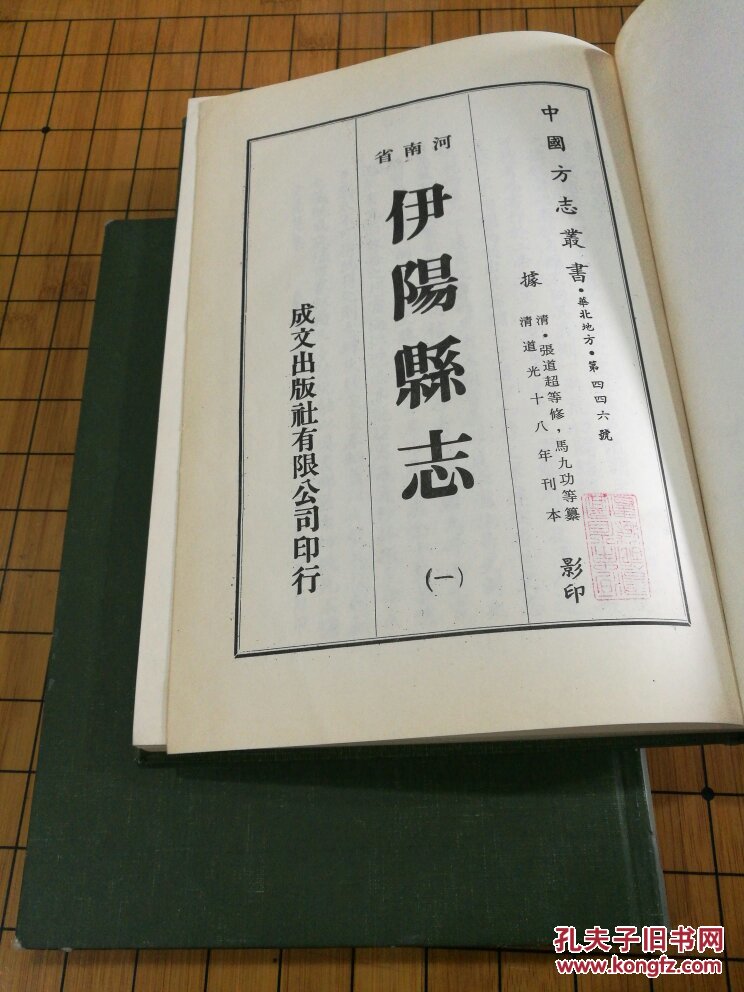 中國方志叢書·華北地方·第四四六號
據
清·張道超等修,馬九功等纂
清道光十八年刊本
影印
河南省
伊陽縣志
(一)
成文出版社有限公司印行
孔夫子旧书网
www.kongfz.com